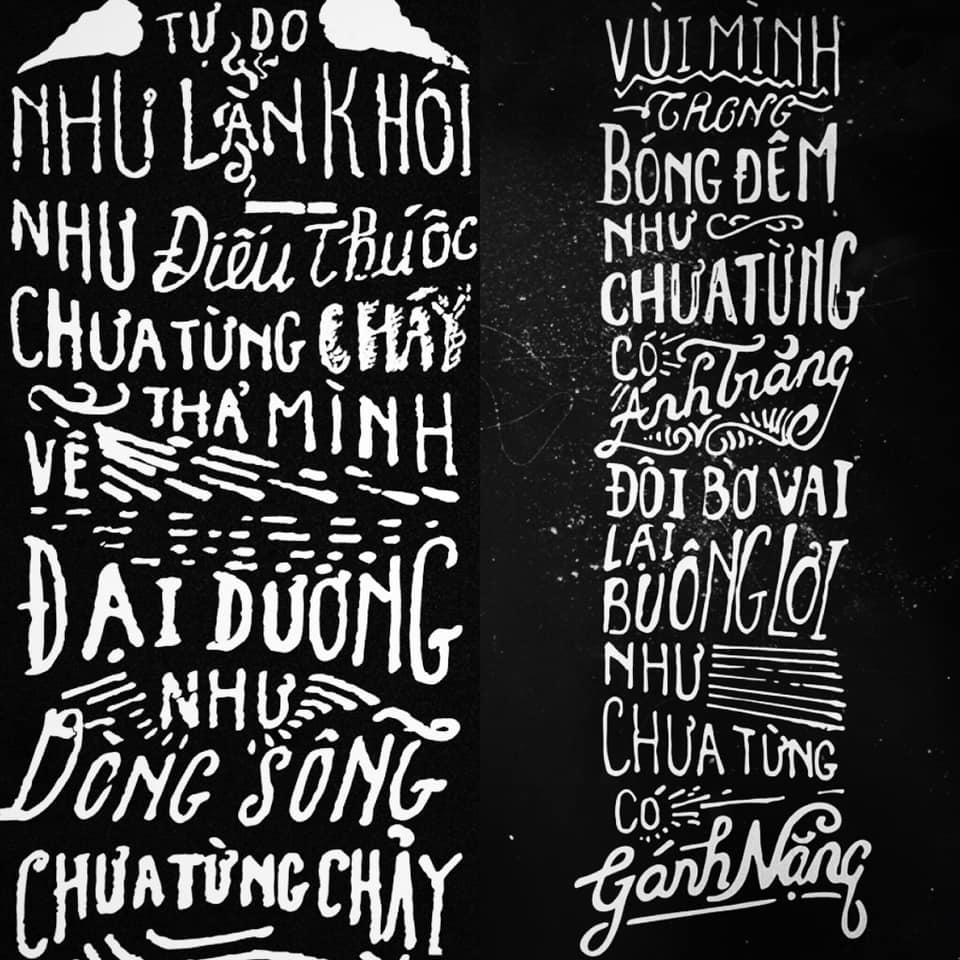 TỰ DO
NHƯ LÀN KHÓI
NHƯ Điếu Thuốc
CHƯA TỪNG CHÁY
THẢ MÌNH
VỀ
ĐẠI DƯƠNG
NHƯ
DÒNG SÔNG
CHƯA TỪNG CHẢY
VÙI MÌNH
TRONG
BÓNG ĐÊM
NHƯ
CHƯA TỪNG
CÓ
Ánh Trăng
ĐÔI BỜ VAI
LẠI
BUÔNG LƠI
NHƯ
CHƯA TỪNG
CÓ
Gánh Nặng